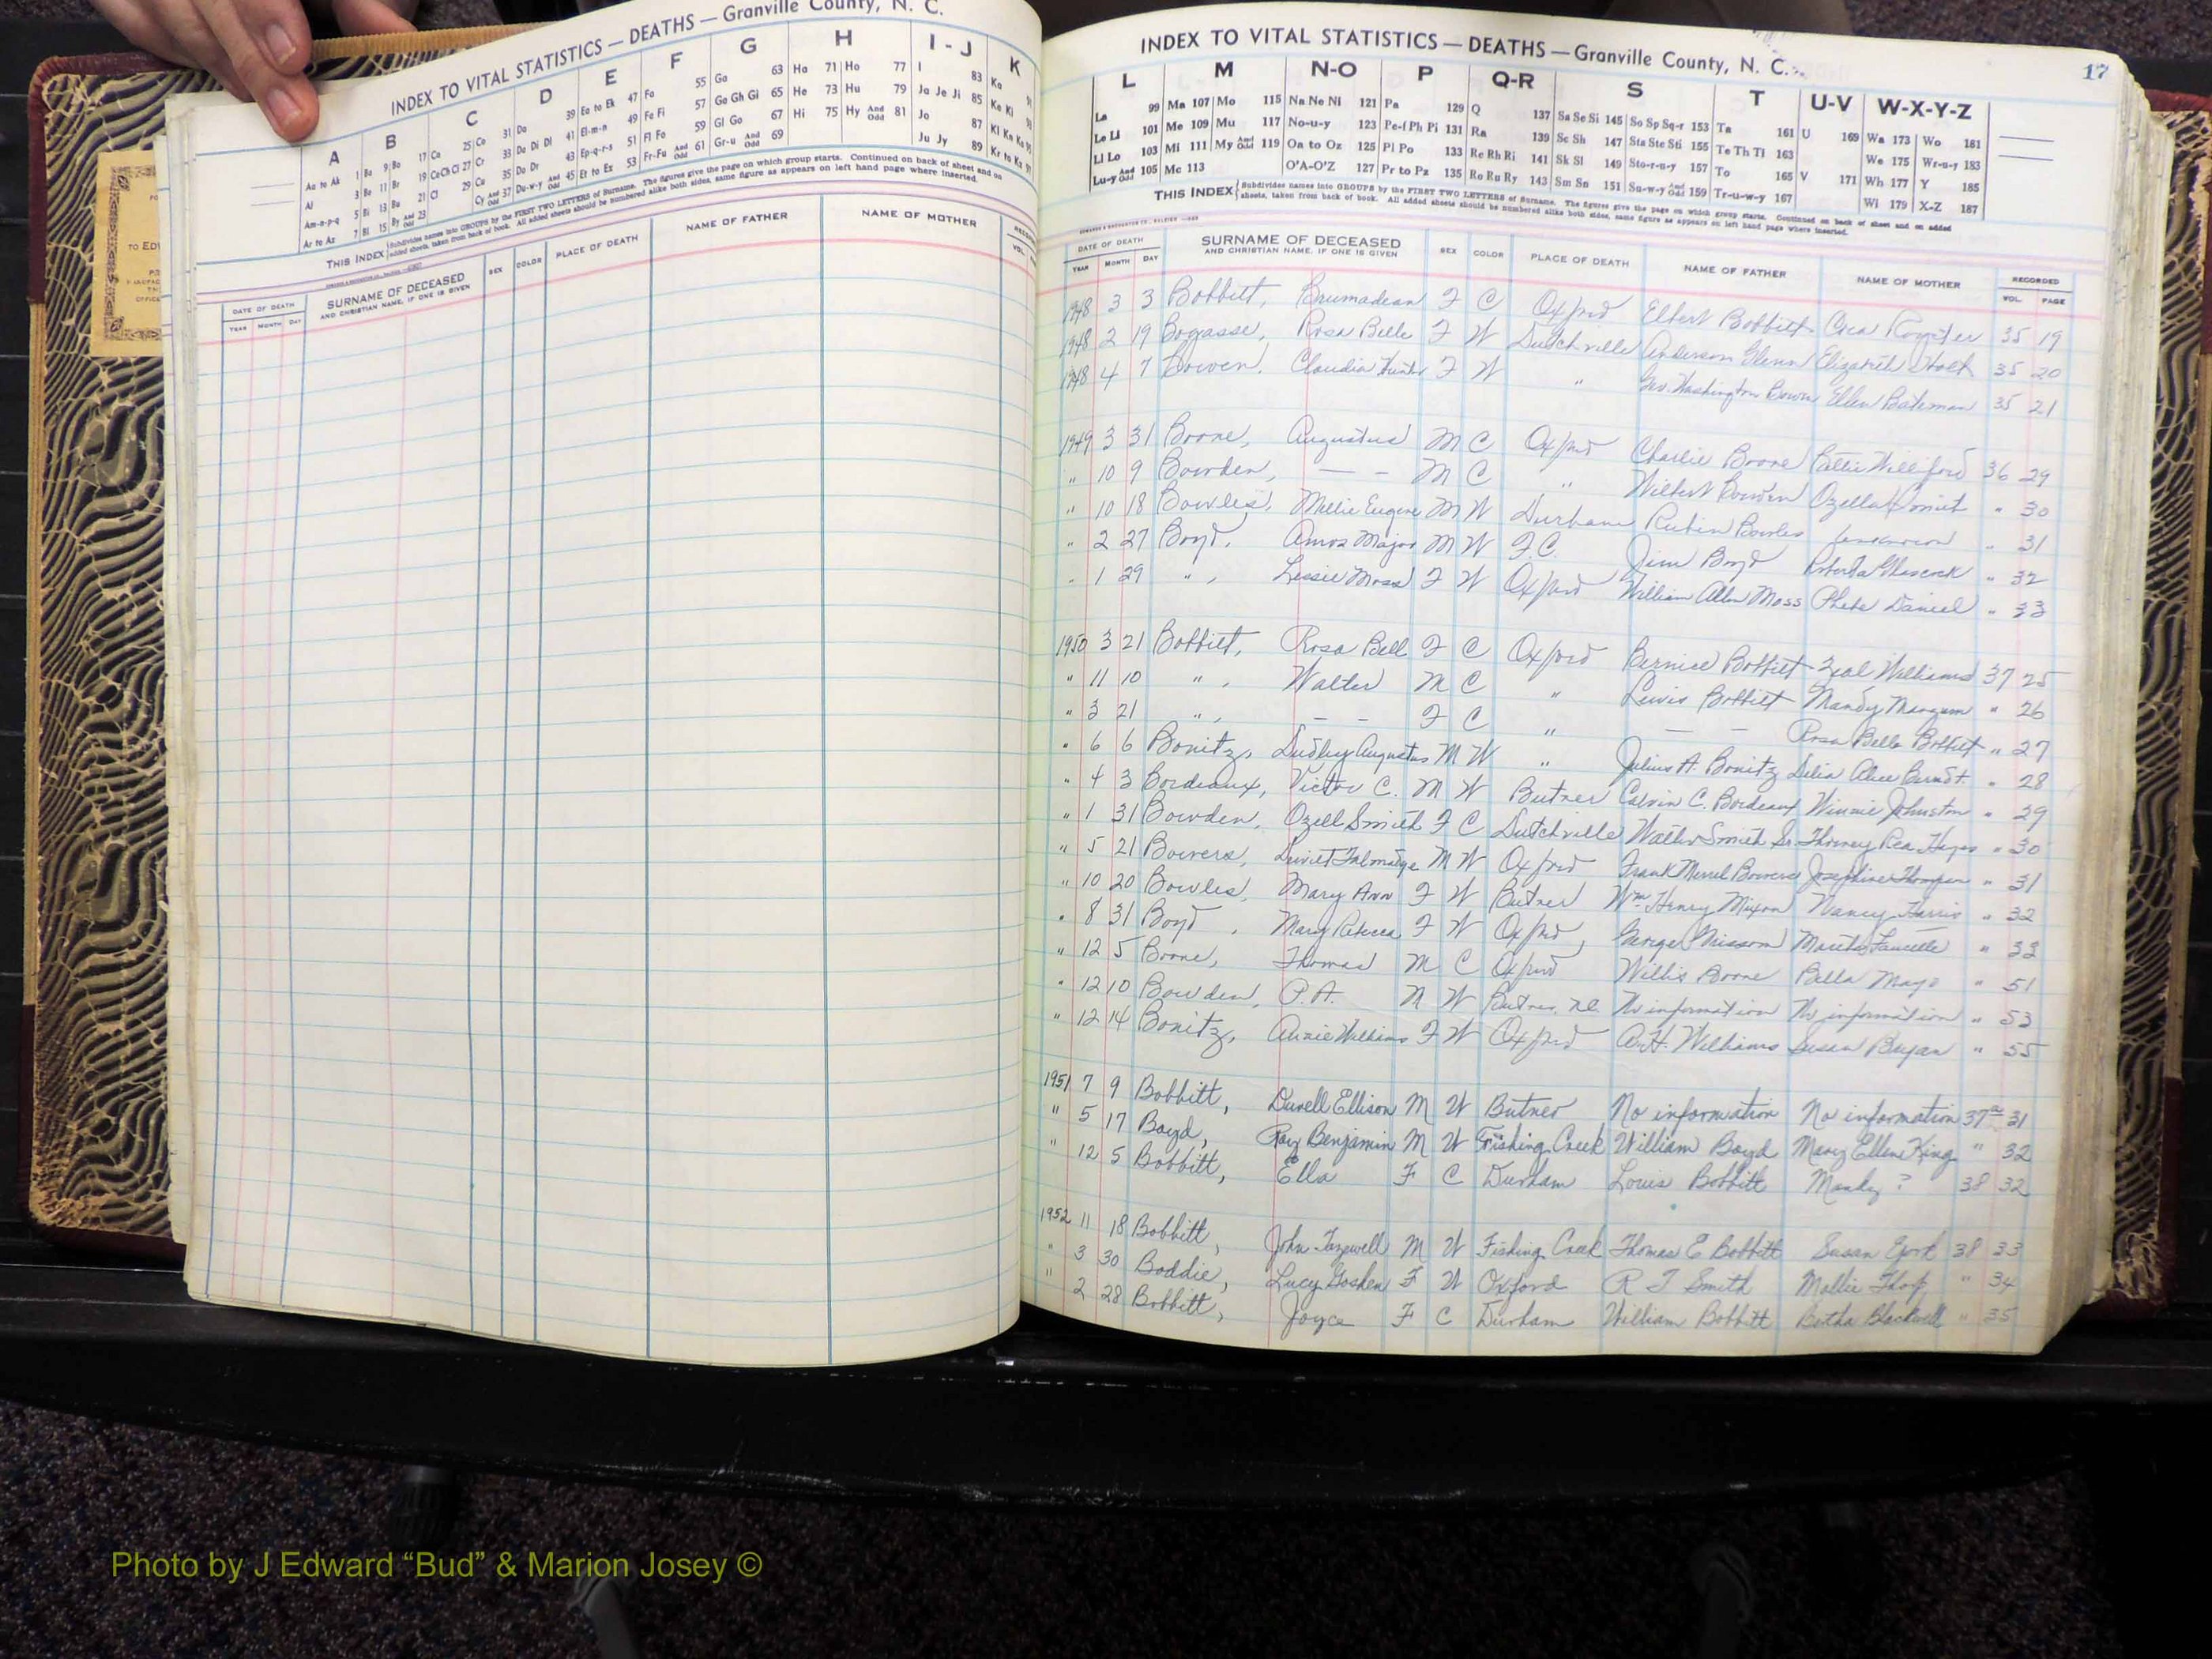 INDEX TO VITAL STATISTICS — DEATHS — Granville County, N. C.
A B C D E F G H I - J K
Aa to Ak 1 Ba 9 Bo 17 Ca 25 Co 31 Da 39 Ea to Ek 47 Fa 55 Ga 63 Ha 71 Ho 77 I 83 Ka
Al 3 Be 11 Br 19 Ce Ch Ci 27 Cr 33 De Di Dl 41 El-m-n 49 Fe Fi 57 Ge Gh Gi 65 He 73 Hu 79 Ja Je Ji 85 Ke Ki
Am-n-p-q 5 Bi 13 Bu 21 Cl 29 Cu 35 Do Dr 43 Ep-q-r-s 51 Fl Fo 59 Gl Go 67 Hi 75 Hy And Odd 81 Jo 87
Ar to Az 7 Bl 15 By And Odd 23 Cy And Odd 37 Du-w-y And Odd 45 Et to Ex 53 Fr-Fu And Odd 61 Gr-u And Odd 69 Ju Jy 89
THIS INDEX Subdivides names into GROUPS by the FIRST TWO LETTERS of Surname. The figures give the page on which group starts. Continued on back of sheet and on
added sheets, taken from back of book. All added sheets should be numbered alike both sides, same figure as appears on left hand page where inserted.
DATE OF DEATH SURNAME OF DECEASED SEX COLOR PLACE OF DEATH NAME OF FATHER NAME OF MOTHER
YEAR MONTH DAY AND CHRISTIAN NAME, IF ONE IS GIVEN VOL.
INDEX TO VITAL STATISTICS — DEATHS — Granville County, N. C.
17
L M N-O P Q-R S T U-V W-X-Y-Z
La 99 Ma 107 Mo 115 Na Ne Ni 121 Pa 129 Q 137 Sa Se Si 145 So Sp Sq-r 153 Ta 161 U 169 Wa 173 Wo 181
Le Li 101 Me 109 Mu 117 No-u-y 123 Pe-f Ph Pi 131 Ra 139 Sc Sh 147 Sta Ste Sti 155 Te Th Ti 163 We 175 Wr-u-y 183
Ll Lo 103 Mi 111 My And Odd 119 On to Oz 125 Pl Po 133 Re Rh Ri 141 Sk Sl 149 Sto-r-u-y 157 To 165 V 171 Wh 177 Y 185
Lu-y And Odd 105 Mc 113 O'A-O'Z 127 Pr to Pz 135 Ro Ru Ry 143 Sm Sn 151 Su-w-y And Odd 159 Tr-u-w-y 167 Wi 179 X-Z 187
THIS INDEX Subdivides names into GROUPS by the FIRST TWO LETTERS of Surname. The figures give the page on which group starts. Continued on back of sheet and on added
sheets, taken from back of book. All added sheets should be numbered alike both sides, same figure as appears on left hand page where inserted.
DATE OF DEATH SURNAME OF DECEASED SEX COLOR PLACE OF DEATH NAME OF FATHER NAME OF MOTHER RECORDED
YEAR MONTH DAY AND CHRISTIAN NAME, IF ONE IS GIVEN VOL. PAGE
1948 3 3 Bobbitt, Brumadean F C Oxford Elbert Bobbitt Royster 35 19
1948 2 19 Bogasse, Rosa Belle F W Dutchville Anderson Glenn Elizabeth 35 20
1948 4 7 Bowen, Claudia F W " Geo. Washington Bowen Ellen Bateman 35 21
1949 3 31 Boone, Augustus M C Oxford Charlie Boone Williford 36 29
" 10 9 Bowden, — — M C " Wilbert Bowden Ozella Smith " 30
" 10 18 Bowles, Millie Eugene M W Durham Rubin Bowles unknown " 31
" 2 27 Boyd, Amos Major M W F.C. Jim Boyd Roberta " 32
" 1 29 " , Lessie Moss F W Oxford William Allen Moss Phebe Daniel " 33
1950 3 21 Bobbitt, Rosa Bell F C Oxford Bernice Bobbitt Zeal Williams 37 25
" 11 10 " , Walter M C " Lewis Bobbitt Mandy Mangum " 26
" 3 21 " , — — F C " — — Rosa Belle Bobbitt " 27
" 6 6 Bonitz, Dudley Augustus M W " Julius A. Bonitz Delia Alice " 28
" 4 3 Bordeaux, Victor C. M W Butner Calvin C. Bordeaux Winnie Johnston " 29
" 1 31 Bowden, Ozell Smith F C Dutchville Walter Smith Sr. Hayes " 30
" 5 21 Bowers, M W Oxford Frank Bowers Josephine Thompson " 31
" 10 20 Bowles, Mary Ann F W Butner Wm Henry Mixon Nancy Harris " 32
" 8 31 Boyd, Mary Rebecca F W Oxford, George Faucette " 33
" 12 5 Boone, Thomas M C Oxford Willis Boone Bella Mayo " 51
" 12 10 Bowden, P.A. M W Butner, NC No information No information " 53
" 12 14 Bonitz, Annie Williams F W Oxford A.H. Williams Susan Bryan " 55
1951 7 9 Bobbitt, Durell Ellison M W Butner No information No information 37 31
" 5 17 Boyd, Roy Benjamin M W Fishing Creek William Boyd Mary Ellen King " 32
" 12 5 Bobbitt, Ella F C Durham Louis Bobbitt Mandy ? 38 32
1952 11 18 Bobbitt, John Tazwell M W Fishing Creek Thomas E Bobbitt Susan 38 33
" 3 30 Boddie, Lucy Goshen F W Oxford R T Smith Mollie " 34
" 2 28 Bobbitt, Joyce F C Durham William Bobbitt Blackwell " 35
Photo by J Edward “Bud” & Marion Josey ©